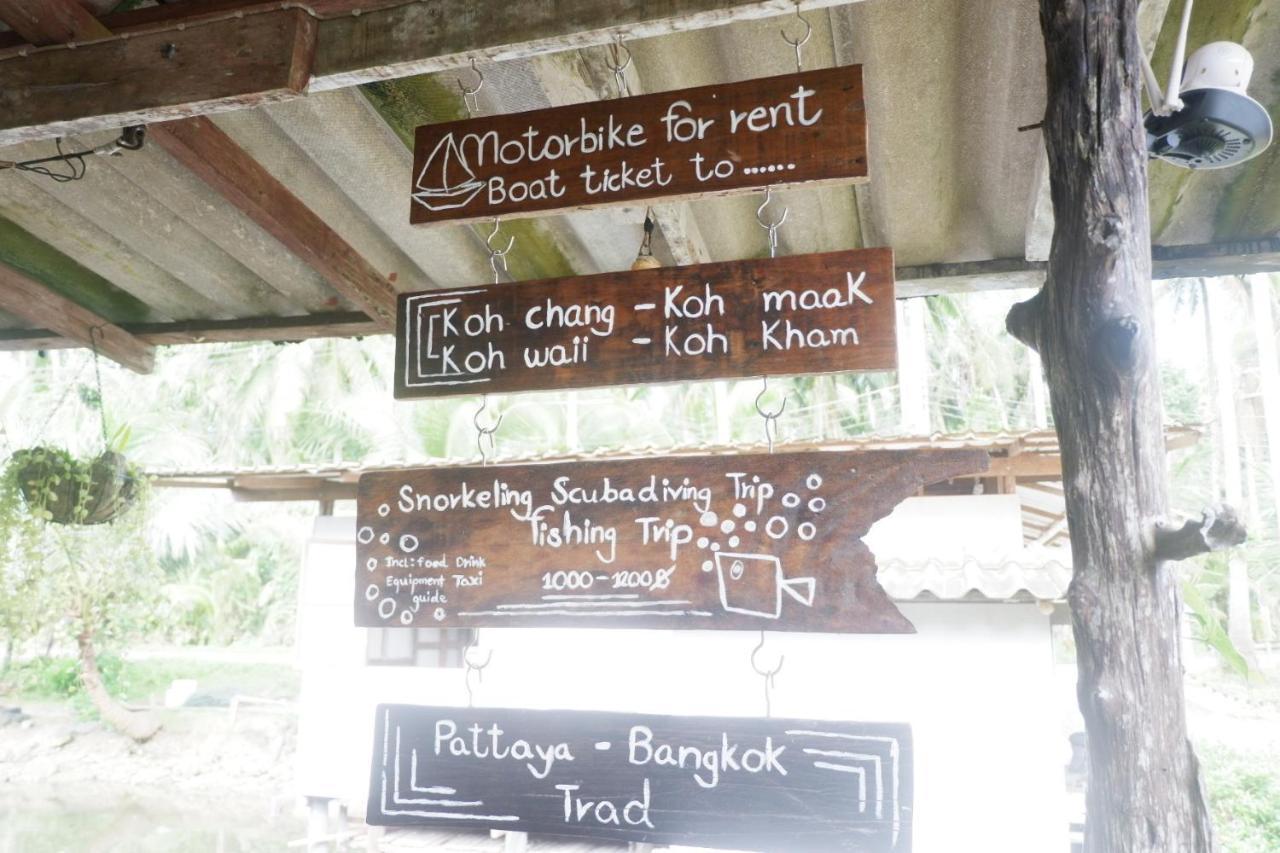 Motorbike for rent
Boat ticket to ......
Koh chang - Koh maak
Koh waii - Koh Kham
Snorkeling Scubadiving Trip
fishing Trip
Incl: food Drink
Equipment Taxi
guide
1000-1200฿
Pattaya - Bangkok
Trad